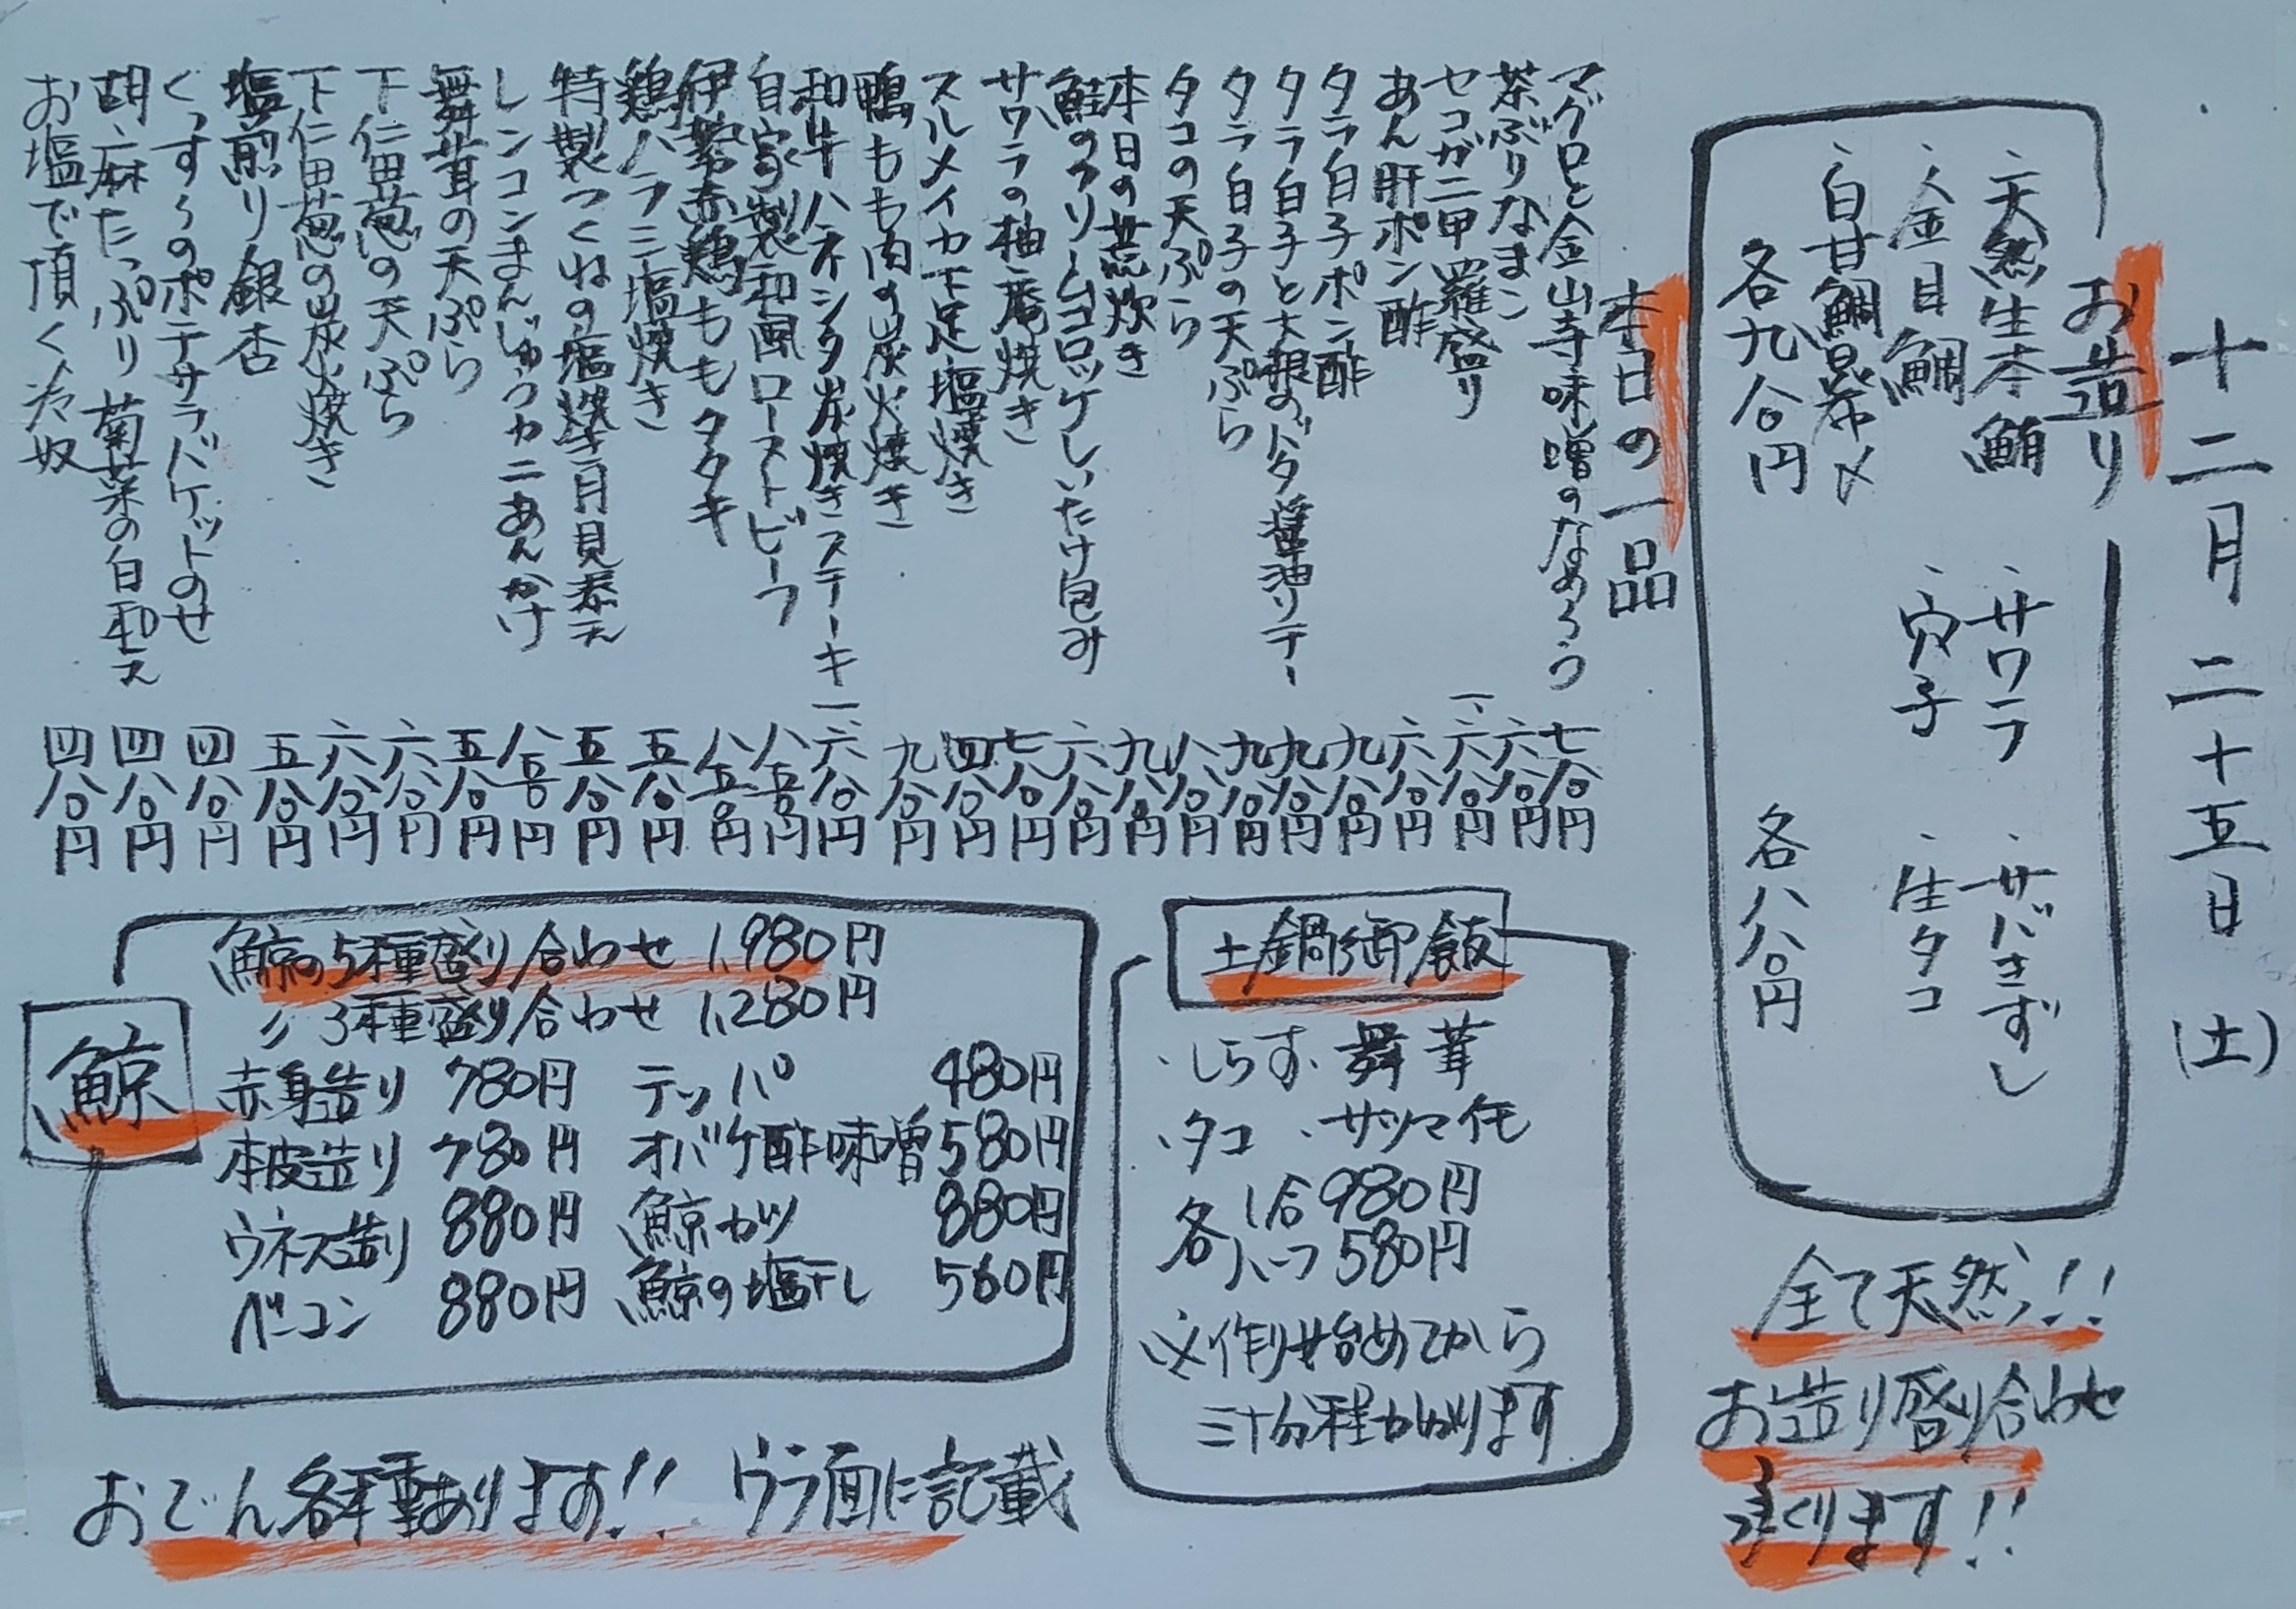 十二月二十五日(土)
お造り
・天然生本鮪 ・サワラ ・サバきずし
・金目鯛 ・穴子 ・生タコ
・白甘鯛昆布〆
各九八〇円 各八八〇円
全て天然!!
お造り盛り合わせ
承ります!!
本日の一品
マグロと金山寺味噌のなめろう 七八〇円
茶ぶりなまこ 六八〇円
セコガニ甲羅盛り 一、六八〇円
あん肝ポン酢 六八〇円
タラ白子ポン酢 九八〇円
タラ白子と大根のバタ醤油ソテー 九八〇円
タラ白子の天ぷら 九八〇円
タコの天ぷら 八八〇円
本日の荒炊き 九八〇円
鮭のクリームコロッケしいたけ包み 六八〇円
サワラの柚庵焼き 七八〇円
スルメイカ下足塩焼き 四八〇円
鴨もも肉の炭火焼き 九八〇円
和牛ハネシタ炭焼きステーキ 一、六八〇円
自家製和風ローストビーフ 八五〇円
伊勢赤鶏ももタタキ 八五〇円
鶏ハラミ塩焼き 五八〇円
特製つくねの塩焼き月見添え 五八〇円
レンコンまんじゅうカニあんかけ 八五〇円
舞茸の天ぷら 五八〇円
下仁田葱の天ぷら 六八〇円
下仁田葱の炭火焼き 六八〇円
塩煎り銀杏 五八〇円
くっすぅのポテサラバケットのせ 四八〇円
胡麻たっぷり菊菜の白和え 四八〇円
お塩で頂く冷奴 四八〇円
土鍋御飯
・しらす・舞茸
・タコ ・サツマイモ
各1合980円
各ハーフ580円
※作り始めてから
三十分程かかります
鯨
鯨の5種盛り合わせ 1,980円
〃 3種盛り合わせ 1,280円
赤身造り 780円 テッパ 480円
本皮造り 780円 オバケ酢味噌 580円
ウネス造り 880円 鯨カツ 880円
ベーコン 880円 鯨の塩干し 560円
おでん各種あります!! ウラ面に記載